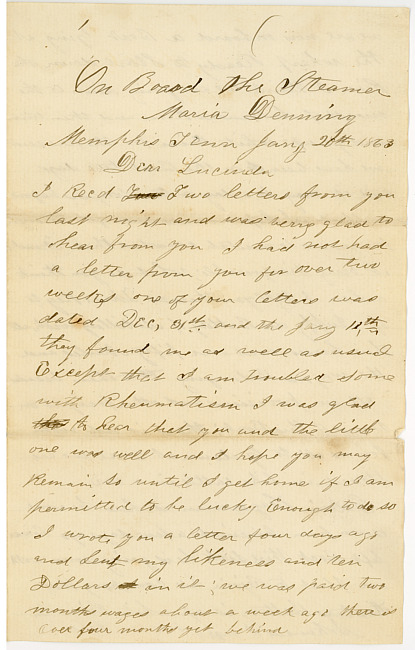 On Board the Steamer
Maria Denning
Memphis Tenn Jany 20th 1863
Dear Lucinda
I Recd Two letters from you
last night and was very glad to
hear from you I had not had
a letter from you for over two
weeks one of your letters was
dated DEC, 31st and the Jany 11th
they found me as well as usual
Except that I am troubled some
with Rheumatism I was glad
to hear that you and the little
one was well and I hope you may
Remain so until I get home if I am
permitted to be lucky Enough to do so
I wrote you a letter four days ago
and sent my likeness and ten
Dollars in it; we was paid two
months wages about a week ago there is
over four months yet behind